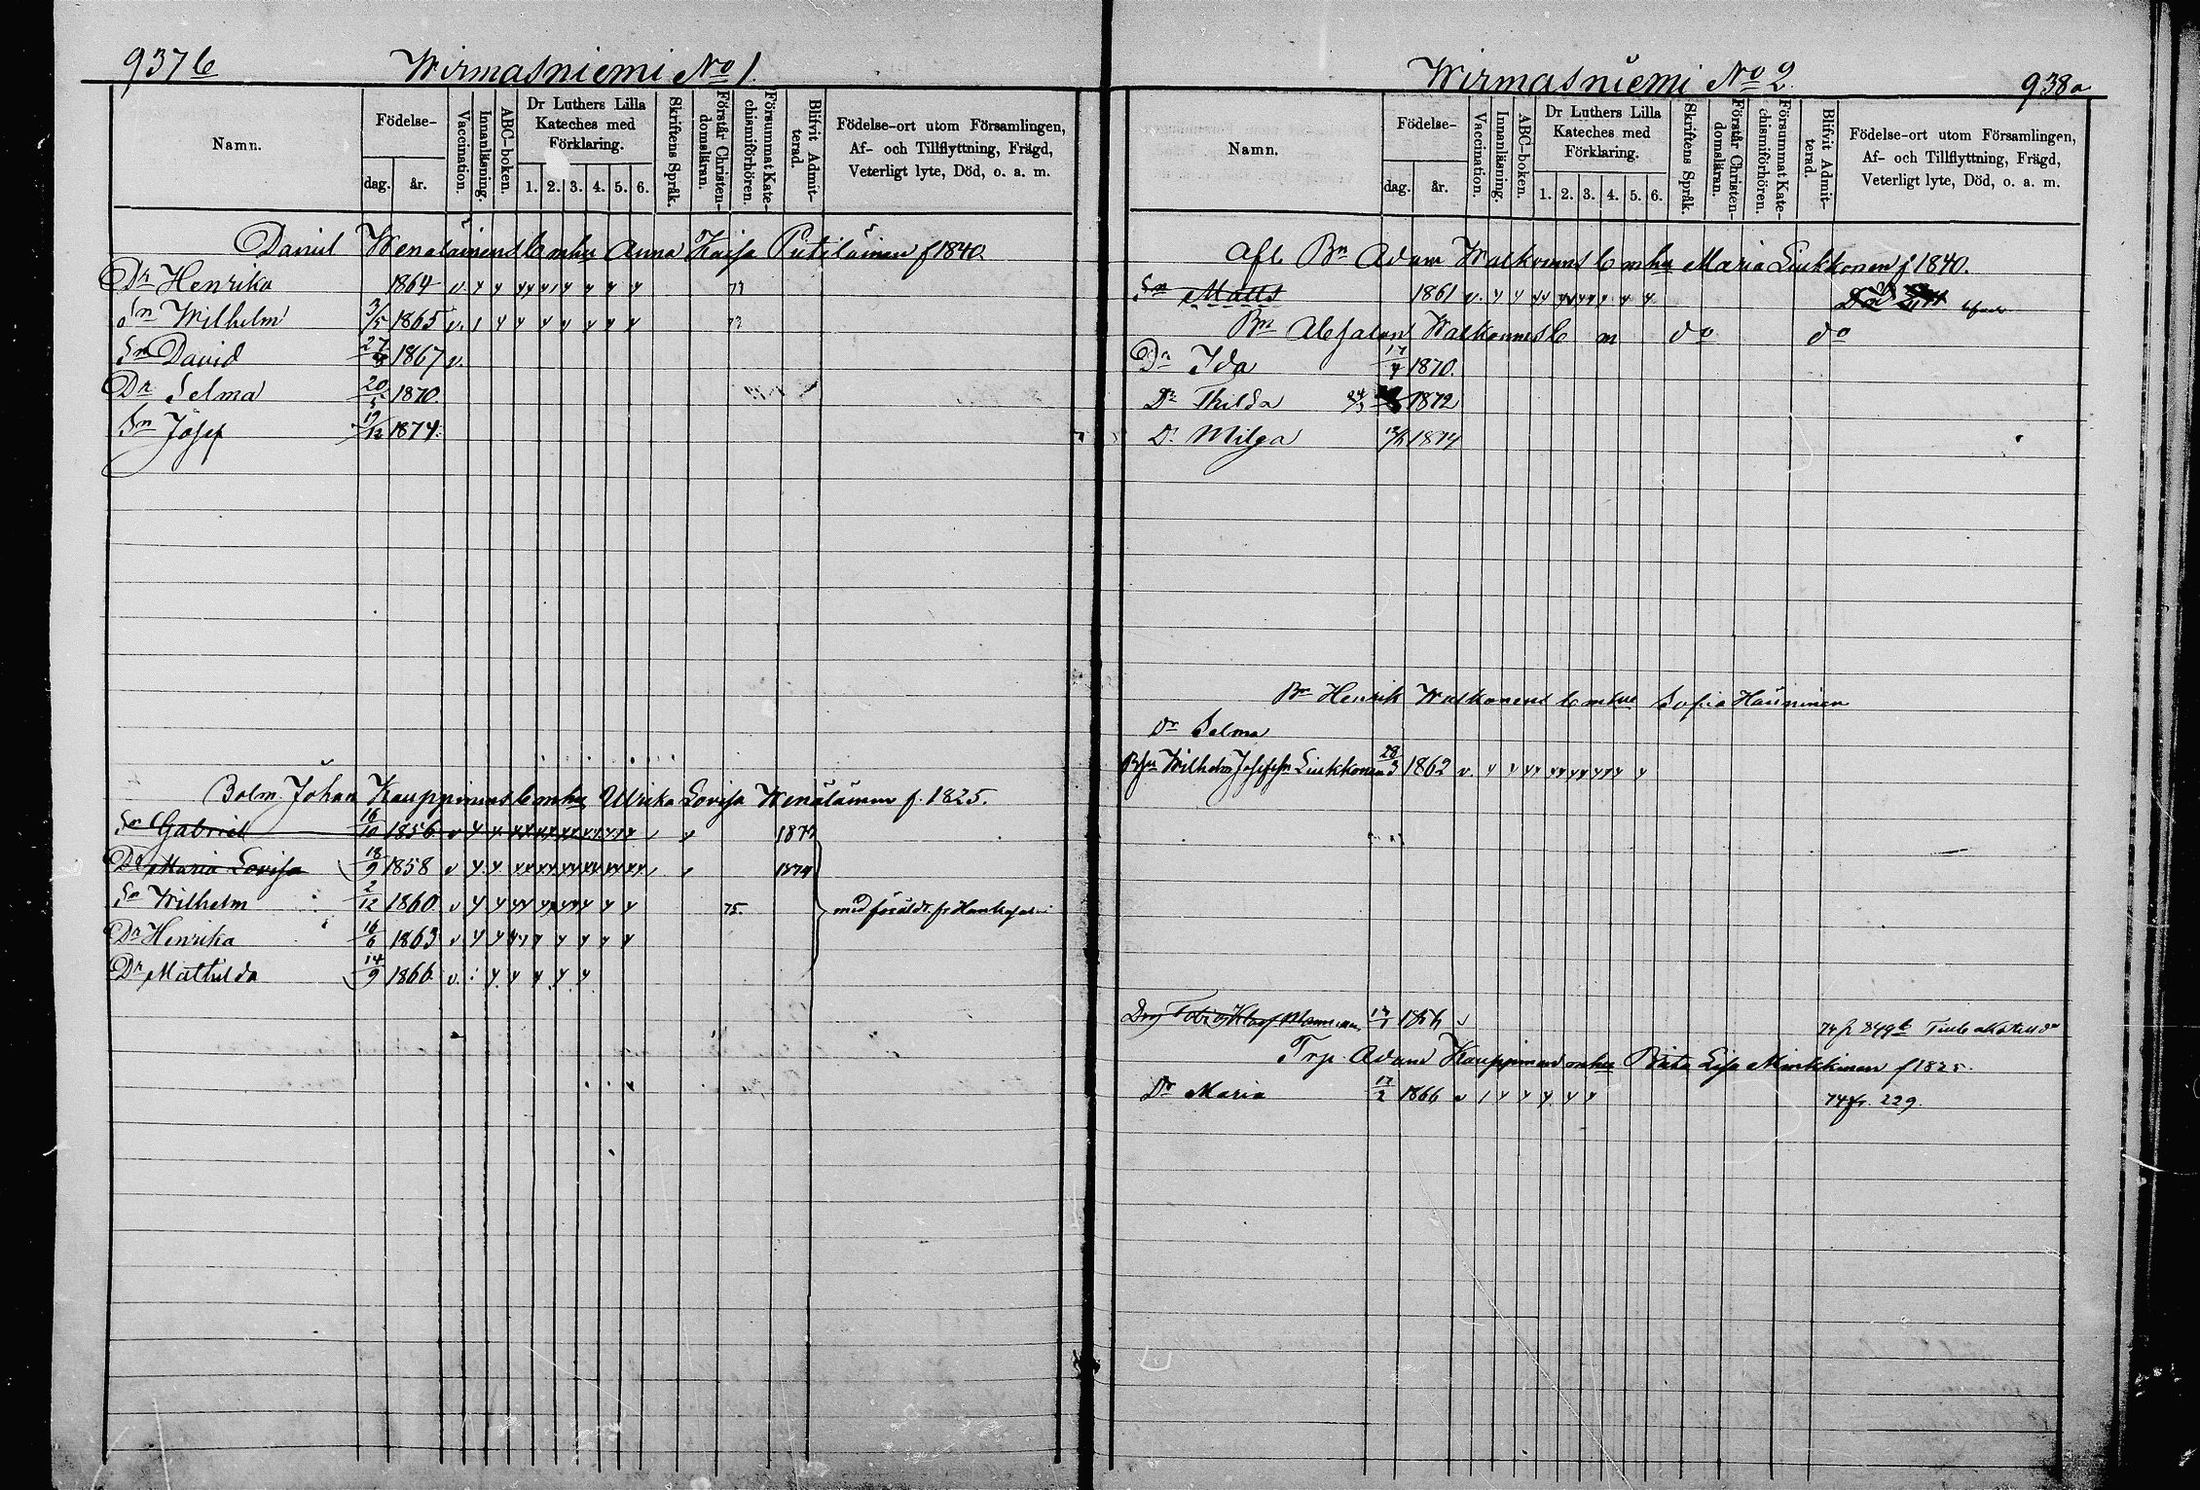 937 b
Wirmasniemi No 1.
Namn.
Födelse-
dag.
år.
Vaccination.
Innanläsning.
ABC-boken.
Dr Luthers Lilla Kateches med Förklaring.
1. 2. 3. 4. 5. 6.
Skriftens Språk.
Förstår Christendomsläran.
Försummat Katechismiförhören.
Blifvit Admitterad.
Födelse-ort utom Församlingen,
Af- och Tillflyttning, Frägd,
Veterligt lyte, Död, o. a. m.
Daniel Wenäläinens b m hu Anna Kaisa Putiläinen f 1840.
Dr Henrika 1864 v. 73
Sn Wilhelm 3/5 1865 v. 73
Sn David 1867 v.
Dr Selma 20/5 1870
Sn Josef 19/12 1874.
Bolm Johan Kauppinens b m hu Ulrika Lovisa Wenäläinen f. 1825.
Sn Gabriel 16/10 1856 v
Dr Maria Lovisa 18/9 1858 v 1874
Sn Wilhelm 2/12 1860 v 75.
med föräldr. fr Hankasalmi
Dr Henrika 16/6 1863 v
Dr Mathilda 14/9 1866 v.
Wirmasniemi No 2.
938 a
Namn.
Födelse-
dag.
år.
Vaccination.
Innanläsning.
ABC-boken.
Dr Luthers Lilla Kateches med Förklaring.
1. 2. 3. 4. 5. 6.
Skriftens Språk.
Förstår Christendomsläran.
Försummat Katechismiförhören.
Blifvit Admitterad.
Födelse-ort utom Församlingen,
Af- och Tillflyttning, Frägd,
Veterligt lyte, Död, o. a. m.
Afl. Bn Adam Walkonens b m hu Maria Liukkonen f 1840.
Sn Matts 1861 v.
Bn Walkonens b m do do
Dr Ida 17/4 1870.
Dr Thilda 1872
Dr Milga 1874
Bn Henrik Walkonens b m hu Sofia Hänninen
Dr Selma
Wilhelm Josefsn Liukkonen 28/3 1862 v.
v
Trp. Adam Kauppinens m hu Brita Lisa Minkkinen f 1825.
Dr Maria 17/2 1866 v 74 fr. 229.